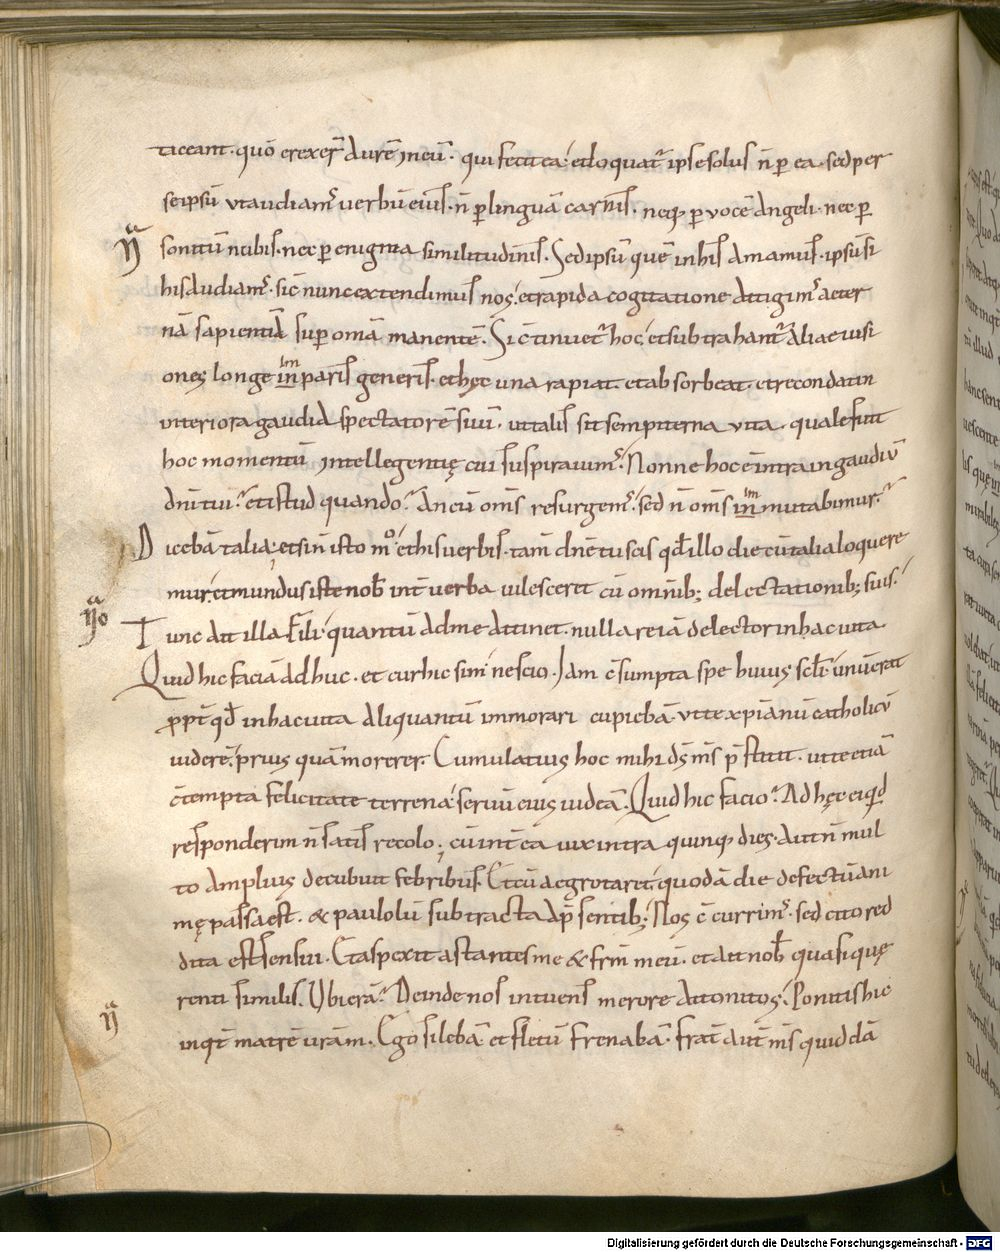 taceant. quō erexer̄ aurē ineū. qui fecit ea. et loquat᷑ ipse solus n̄ ꝑ ea. sed per
seipsū ut audiam᷒ uerbū eius. n̄ ꝑ linguā carnis. neq; ꝑ uocē angeli. nec ꝑ
sonitū nubis. nec ꝑ enigma similitudinis. Sed ipsū quē in his amamus. ipsū si
his audiam᷒. sic̄ nunc extendimus nos. et rapida cogitatione attigim᷒ aeter
nā sapientiā suꝑ om̄a manentē. Si c̄tinuet᷑ hoc. et subtrahant᷑ aliae uisi
ones longe inparis generis. et hęc una rapiat. et absorbeat. et recondat in
interiora gaudia spectatorē suū. ut talis sit sempiterna uita. quale fuit
hoc momentū intellegentię cui suspirauim᷒. Nonne hoc ē intra in gaudiū
dn̄i tui. et istud quando. An cū om̄s resurgem᷒. sed n̄ om̄s inmutabimur.
Dicebā talia. etsi n̄ isto mͦ et his uerbis. tam̄ dn̄e tu scis qđ illo die cū talia loquere
mur. et mundus iste nob̄ int̄ uerba uilesceret cū omnib; delectationib; suis.
Tunc ait illa. Fili. quantū ad me attinet. nulla re iā delector in hac uita.
Quid hic faciā adhuc. et cur hic sim nescio. Iam c̄sumpta spe huius scłi. unū erat
ꝓpt̄ qđ in hac uita aliquantū inmorari cupiebā. ut te xp̄ianū catholicū
uiderē. prius quā morerer. Cumulatius hoc mihi ds̄ ms̄ p̄stitit. ut te etiā
c̄tempta felicitate terrena. seruū eius uideā. Quid hic facio. Ad hęc ei qđ
responderim n̄ satis recolo. cū int̄ea uix intra quinq; dies. aut n̄ mul
to amplius decubuit febribus. Et cū aegrotaret. quodā die defectū ani
mę passa est. & paululū subtracta a p̄sentib; Nos c̄currim᷒. sed cito red
dita est sensui. Et aspexit astantes me & frm̄ meū. et ait nob̄ quasi quę
renti similis. Ubi erā. Deinde nos intuens merore attonitos. Ponitis hic
inqt̄ matrē urām. Ego silebā. et fletū frenabā. frat̄ aut̄ ms̄ quiddā
Digitalisierung gefördert durch die Deutsche Forschungsgemeinschaft - DFG